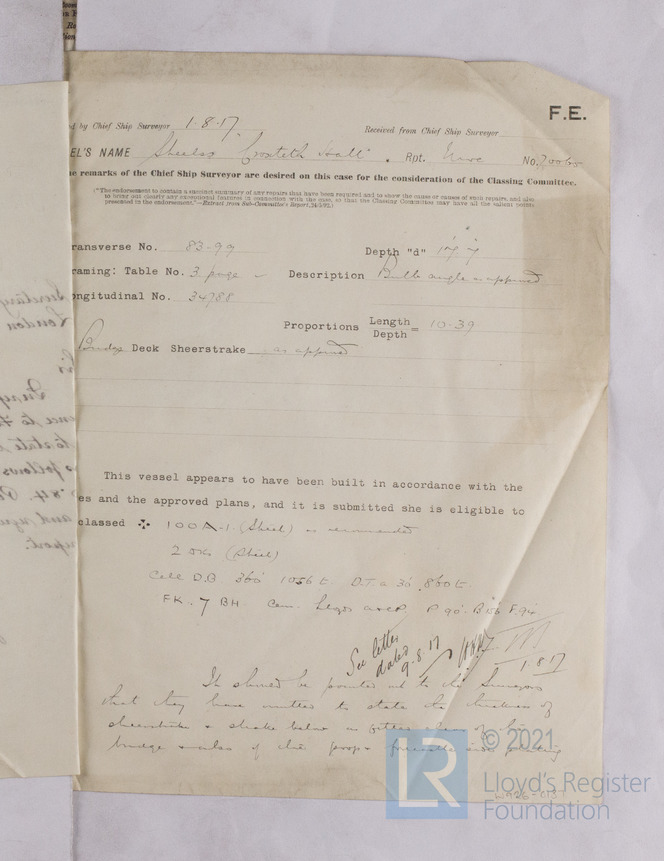 F.E.
ed by Chief Ship Surveyor 1.8.17. Received from Chief Ship Surveyor
EL'S NAME Croxteth Hall . Rpt. No. 70065
e remarks of the Chief Ship Surveyor are desired on this case for the consideration of the Classing Committee.
("The endorsement to contain a succinct summary of any repairs that have been required and to show the cause or causes of such repairs, and also
to bring out clearly any exceptional features in connection with the case, so that the Classing Committee may have all the salient points
presented in the endorsement."—Extract from Sub-Committee's Report,
ransverse No. 83.99 Depth "d"
raming: Table No. 3 page Description Bulb angle as approved
ongitudinal No. 34788
Proportions Length
Depth = 10.39
Bridge Deck Sheerstrake as approved
This vessel appears to have been built in accordance with the
es and the approved plans, and it is submitted she is eligible to
classed ✠ 100A.1. (Steel) as recommended
2 Dks (Steel)
Cell D.B 360' 1056 t. D.T.a 30' 860 t.
FK. 7 BH. Cem. P 90' B F 94'
See letter
dated
9.8.17
1.8.17
It should be pointed out to the Surveyors
that they have omitted to state the thickness of
sheerstrake & strake below
bridge of the poop & forecastle side plating
© 2021
LR Lloyd's Register
Foundation